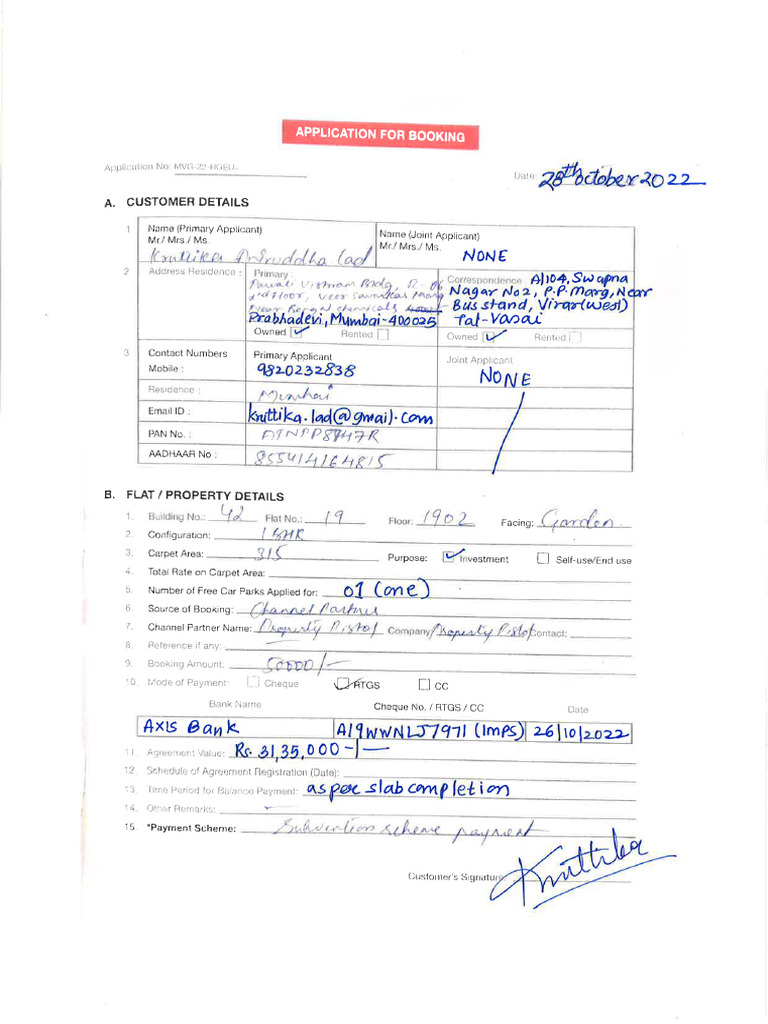 APPLICATION FOR BOOKING
Application No: MVG-22-HGEU-
Date: 28th October 2022
A. CUSTOMER DETAILS
1 Name (Primary Applicant) Mr./ Mrs./ Ms. Kruttika Aniruddha lad
Name (Joint Applicant) Mr./ Mrs./ Ms. NONE
2 Address Residence :
Primary :
Bldg,
2nd Floor, Veer Savarkar Marg
Near Bengal chemicals
Prabhadevi, Mumbai-400025
Owned ✓ Rented
Correspondence A/104, Swapna
Nagar No 2, P.P. Marg, Near
Bus stand, Virar (West)
Tal-Vasai
Owned ✓ Rented
3 Contact Numbers Primary Applicant Joint Applicant
Mobile : 9820232838 NONE
Residence : Mumbai
Email ID : kruttika.lad@gmail.com
PAN No. :
AADHAAR No : 855414164815
B. FLAT / PROPERTY DETAILS
1. Building No.: 42 Flat No.: 19 Floor: 1902 Facing: Garden
2. Configuration: 1 BHK
3. Carpet Area: 315 Purpose: ✓ Investment Self-use/End use
4. Total Rate on Carpet Area:
5. Number of Free Car Parks Applied for: 01 (one)
6. Source of Booking: Channel Partner
7. Channel Partner Name: Property Pistol Company Property Pistol Contact:
8. Reference if any:
9. Booking Amount: 50000/-
10. Mode of Payment: Cheque ✓ RTGS CC
Bank Name Cheque No. / RTGS / CC Date
AXIS Bank A19WWNLJ7971 (IMPS) 26/10/2022
11. Agreement Value: Rs. 31,35,000-/-
12. Schedule of Agreement Registration (Date):
13. Time Period for Balance Payment: as per slab completion
14. Other Remarks: -
15. *Payment Scheme: Subvention scheme payment
Customer's Signature: Kruttika